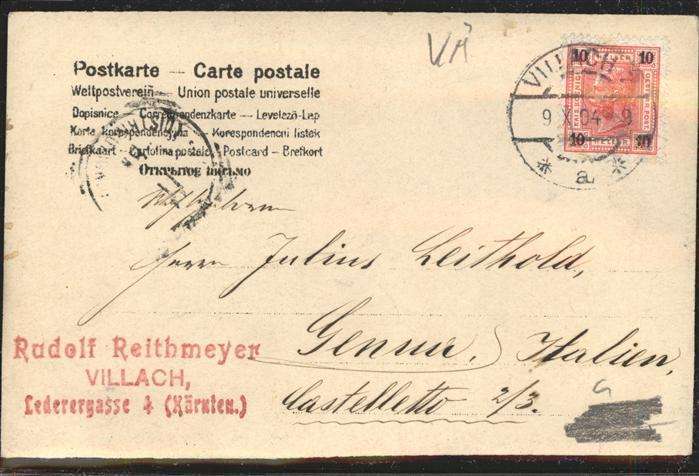 VA
Postkarte — Carte postale
Weltpostverein — Union postale universelle
Dopisnice — Correspondenzkarte — Levelezö-Lap
Karta korespondencyjna — Korespondencni listek
Briefkaart — Cartolina postale — Postcard — Brefkort
Открытое письмо
10 10
VILLACH
9 X 04 9
10 10
* a *
Wohlgeboren
Herrn Julius Leithold,
Genua, Italien,
Castelletto 2/3.
Rudolf Reithmeyer
VILLACH,
Lederergasse 4 (Kärnten.)